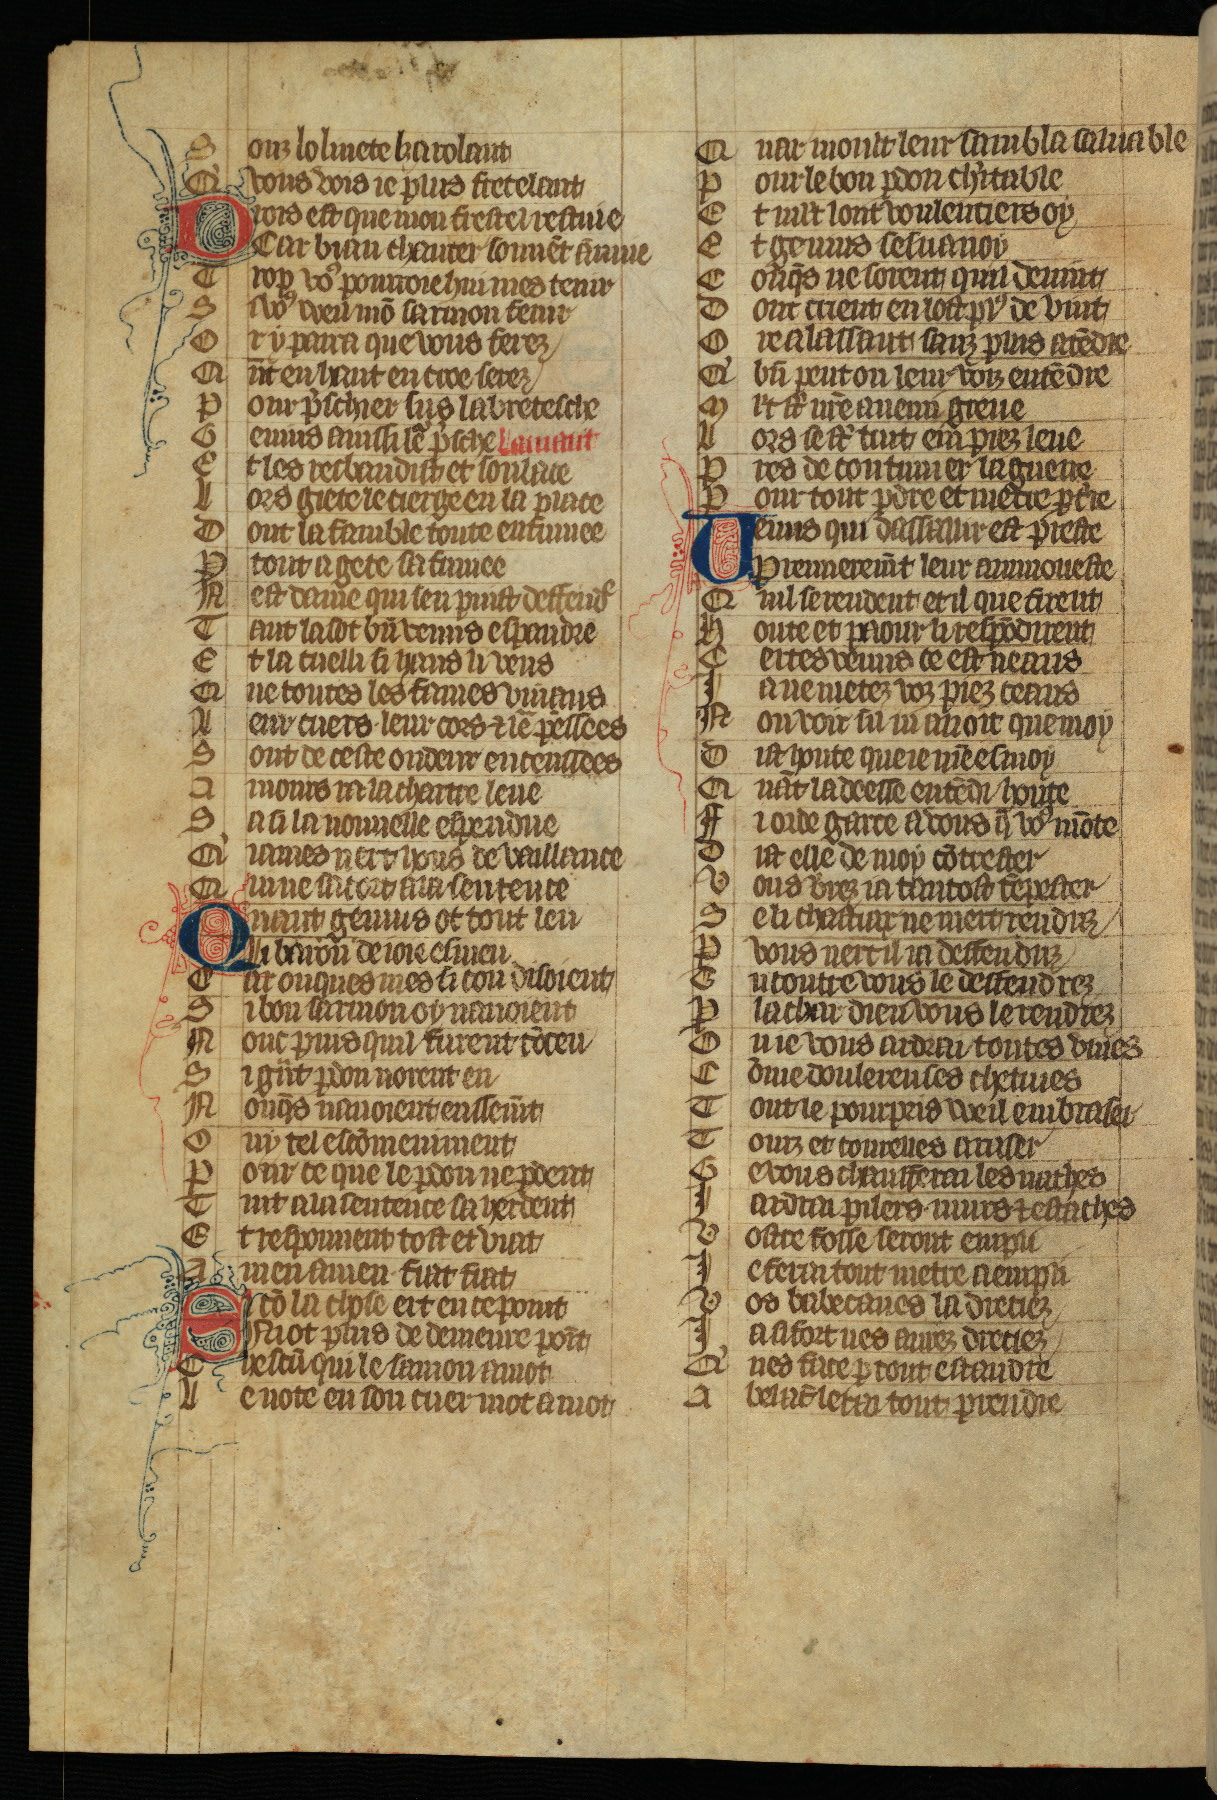 S ouz lolivete karolant
A vous vois ie plus fretelant
D rois est que mon frestel restuie
Car biau chanter souuēt ānuie
T rop voꝰ pourroie hui mes tenir
S i voꝰ weil mō sarmon fenir
O r y parra que vous ferez
Q ūt en haut en croe serez
P our p̄schier sus la bretesche
G enius ainssi le᷑ p̄sche Lamant
E t les resbaudist et soulace
L ors giete le cierge en la place
D ont la famble toute enfumee
P tout a gete sa fumee
N est dame qui sen puist deffend᷑
T ant la sot bn̄ venus espandre
E t la cuelli si haus li vens
Q ue toutes les fames viuans
L eur cuers leur cors ⁊ le᷑ pēssees
S ont de ceste oudeur encenssees
A mours ia la chartre leue
S a si la nouuelle espendue
Q iames niert hons de vaillance
Q ui ne sacort a la sentence
Q uant genius ot tout leu
Li baron de ioie esmeu
C ar onques mes si con disoient
S i bon sarmon oy nauoient
N onc puis quil furent cōceu
S i gn̄t pdon norent eu
N onqͣs nauoient enssem̄t
O uy tel escōmeniment
P our ce que le pdon ne pdent
T uit a la sentence saherdent
E t respounent tost et viat
A men amen fiat fiat
S i cō la chose ert en ce point
N i ot plus de demeure poīt
C hescū qui le samon amot
L e note en son cuer mot a mot
Q uar moult leur sambla saluable
P our le bon pdon ch'itable
E t mlt lont voulentiers oy
E t genius sesuanoy
C onqͣs ne sorent quil deuint
D ont crient en lost pꝰ de vint
O re a lassaut sanz plus atēdre
Q bn̄ peut on leur voiz entēdre
M lt st᷑ nr̄e anemi greue
L ors se st᷑ tuit em piez leue
P res de continuer la guerre
P our tout pdre et metre p t're
V enus qui dassalir est preste
Premierem̄t leur ammoneste
Q uil se rendent et il que firent
H onte et paour li respōdirent
C ertes venus ce est neans
I a ne metez voz piez ceans
N on voir sil ni auoit que moy
D ist honte que ie mē esmoy
Q uāt la deesse entēdi honte
F i orde garce a vous q̄ voꝰ mōte
D ist elle de moy cōtrester
V ous v'rez ia tantost tēpester
S e li chastiax ne mert renduz
P vous niert il ia deffenduz
E ncontre vous le deffendrez
P la char dieu vous le rendrez
O u ie vous ardrai toutes viues
C ōme doulereuses chetiues
T out le pourpris weil embraser
T ours et tourelles araser
G e vous chaufferai les naches
I ardrai pilers murs ⁊ estaches
V ostre fosse seront empli
I e ferai tout metre a empli
V os babecanes la dreciez
I a si fort nes aurez dreciez
Q nes face p tout estandre
A bel acl᷑ letra tout prendre